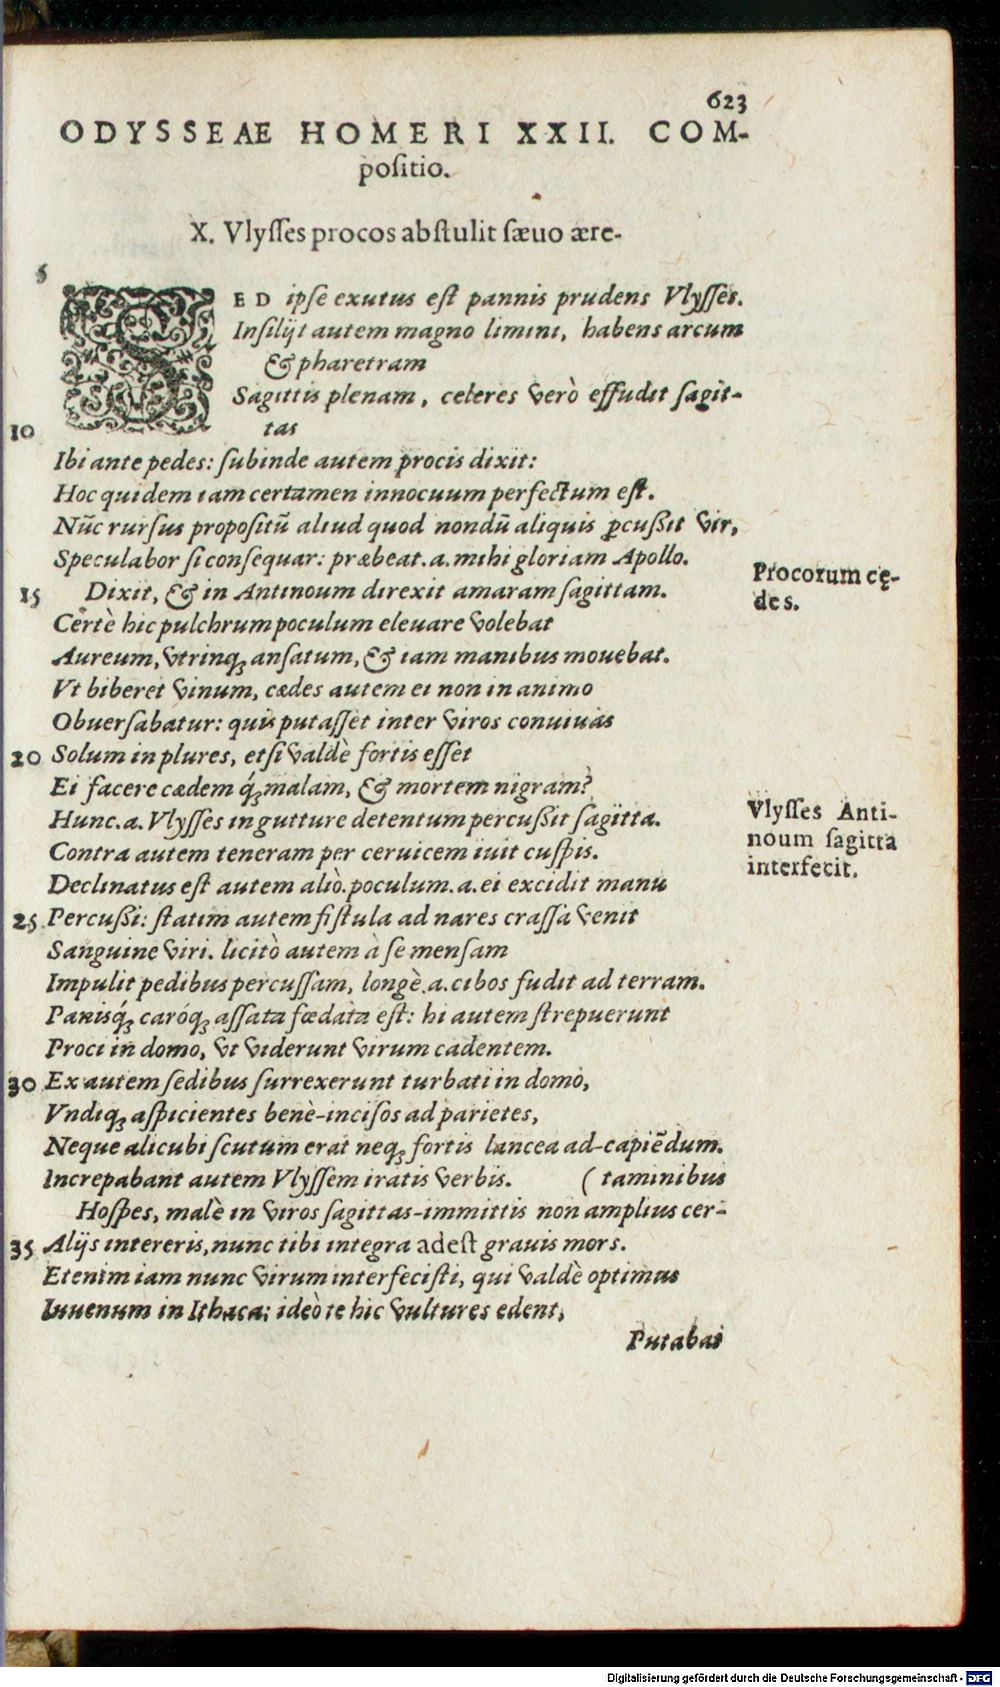 623
ODYSSEAE HOMERI XXII. COM-
poſitio.
X. Vlyſſes procos abſtulit ſæuo ære-
5
SED ipſe exutus eſt pannis prudens Vlyſſes.
Inſilijt autem magno limini, habens arcum
& pharetram
Sagittis plenam, celeres verò effudit ſagit-
10 tas
Ibi ante pedes: ſubinde autem procis dixit:
Hoc quidem iam certamen innocuum perfectum eſt.
Nūc rurſus propoſitū aliud quod nondū aliquis ꝑcuſſit vir,
Speculabor ſi conſequar: præbeat .a. mihi gloriam Apollo.
15 Dixit, & in Antinoum direxit amaram ſagittam.
Procorum cę-
des.
Certè hic pulchrum poculum eleuare volebat
Aureum, vtrinq; anſatum, & iam manibus mouebat.
Vt biberet vinum, cædes autem ei non in animo
Obuerſabatur: quis putaſſet inter viros conuiuas
20 Solum in plures, etſi valdè fortis eſſet
Ei facere cædem q́; malam, & mortem nigram?
Hunc .a. Vlyſſes in gutture detentum percuſſit ſagitta.
Vlyſſes Anti-
noum ſagitta
interfecit.
Contra autem teneram per ceruicem iuit cuſpis.
Declinatus eſt autem aliò. poculum .a. ei excidit manu
25 Percuſſi: ſtatim autem fiſtula ad nares craſſa venit
Sanguine viri. licitò autem à ſe menſam
Impulit pedibus percuſſam, longè .a. cibos fudit ad terram.
Panisq́; caróq; aſſata fœdata eſt: hi autem ſtrepuerunt
Proci in domo, vt viderunt virum cadentem.
30 Ex autem ſedibus ſurrexerunt turbati in domo,
Vndiq; aſpicientes benè-inciſos ad parietes,
Neque alicubi ſcutum erat neq; fortis lancea ad-capiēdum.
Increpabant autem Vlyſſem iratis verbis. (taminibus
Hoſpes, malè in viros ſagittas-immittis non amplius cer-
35 Alijs intereris, nunc tibi integra adeſt grauis mors.
Etenim iam nunc virum interfeciſti, qui valdè optimus
Iuuenum in Ithaca: ideò te hic vultures edent,
Putabas
Digitalisierung gefördert durch die Deutsche Forschungsgemeinschaft - DFG